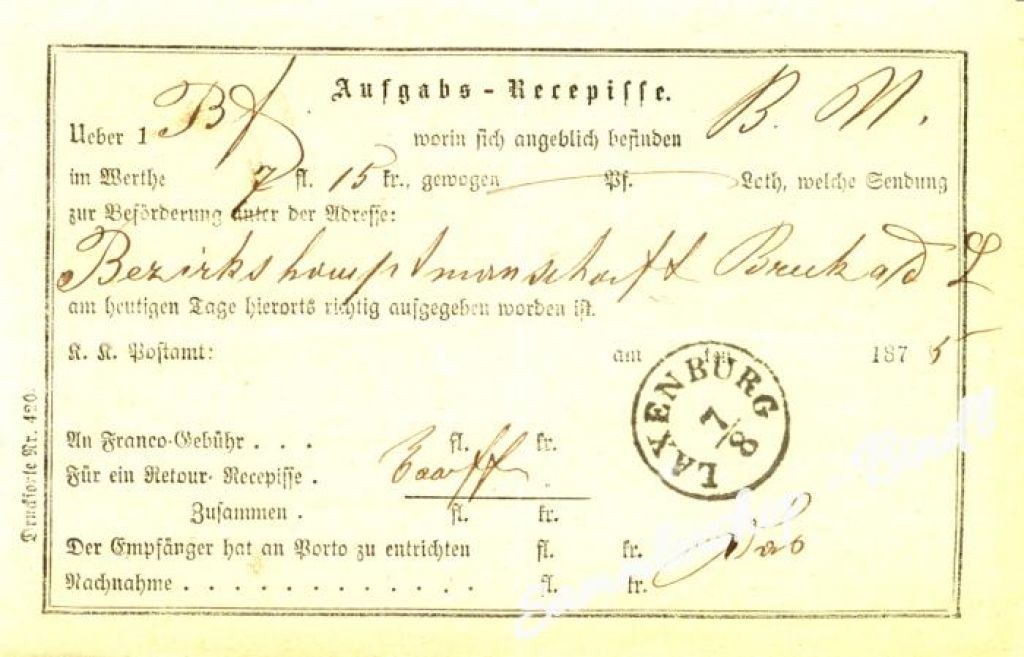 Aufgabs-Recepisse.
Ueber 1 Bf worin sich angeblich befinden B. N.
im Werthe 7 fl. 15 kr., gewogen Pf. Loth, welche Sendung
zur Beförderung unter der Adresse:
Bezirkshauptmanschaft Bruck a/d L
am heutigen Tage hierorts richtig aufgegeben worden ist.
K. K. Postamt: am ten 1875
LAXENBURG
7/8
An Franco-Gebühr . . . fl. kr.
Für ein Retour-Recepisse .
Zusammen . fl. kr.
Der Empfänger hat an Porto zu entrichten fl. kr.
Nachnahme . . . . . . . . . . . . . fl. kr.
Drucksorte Nr. 420.